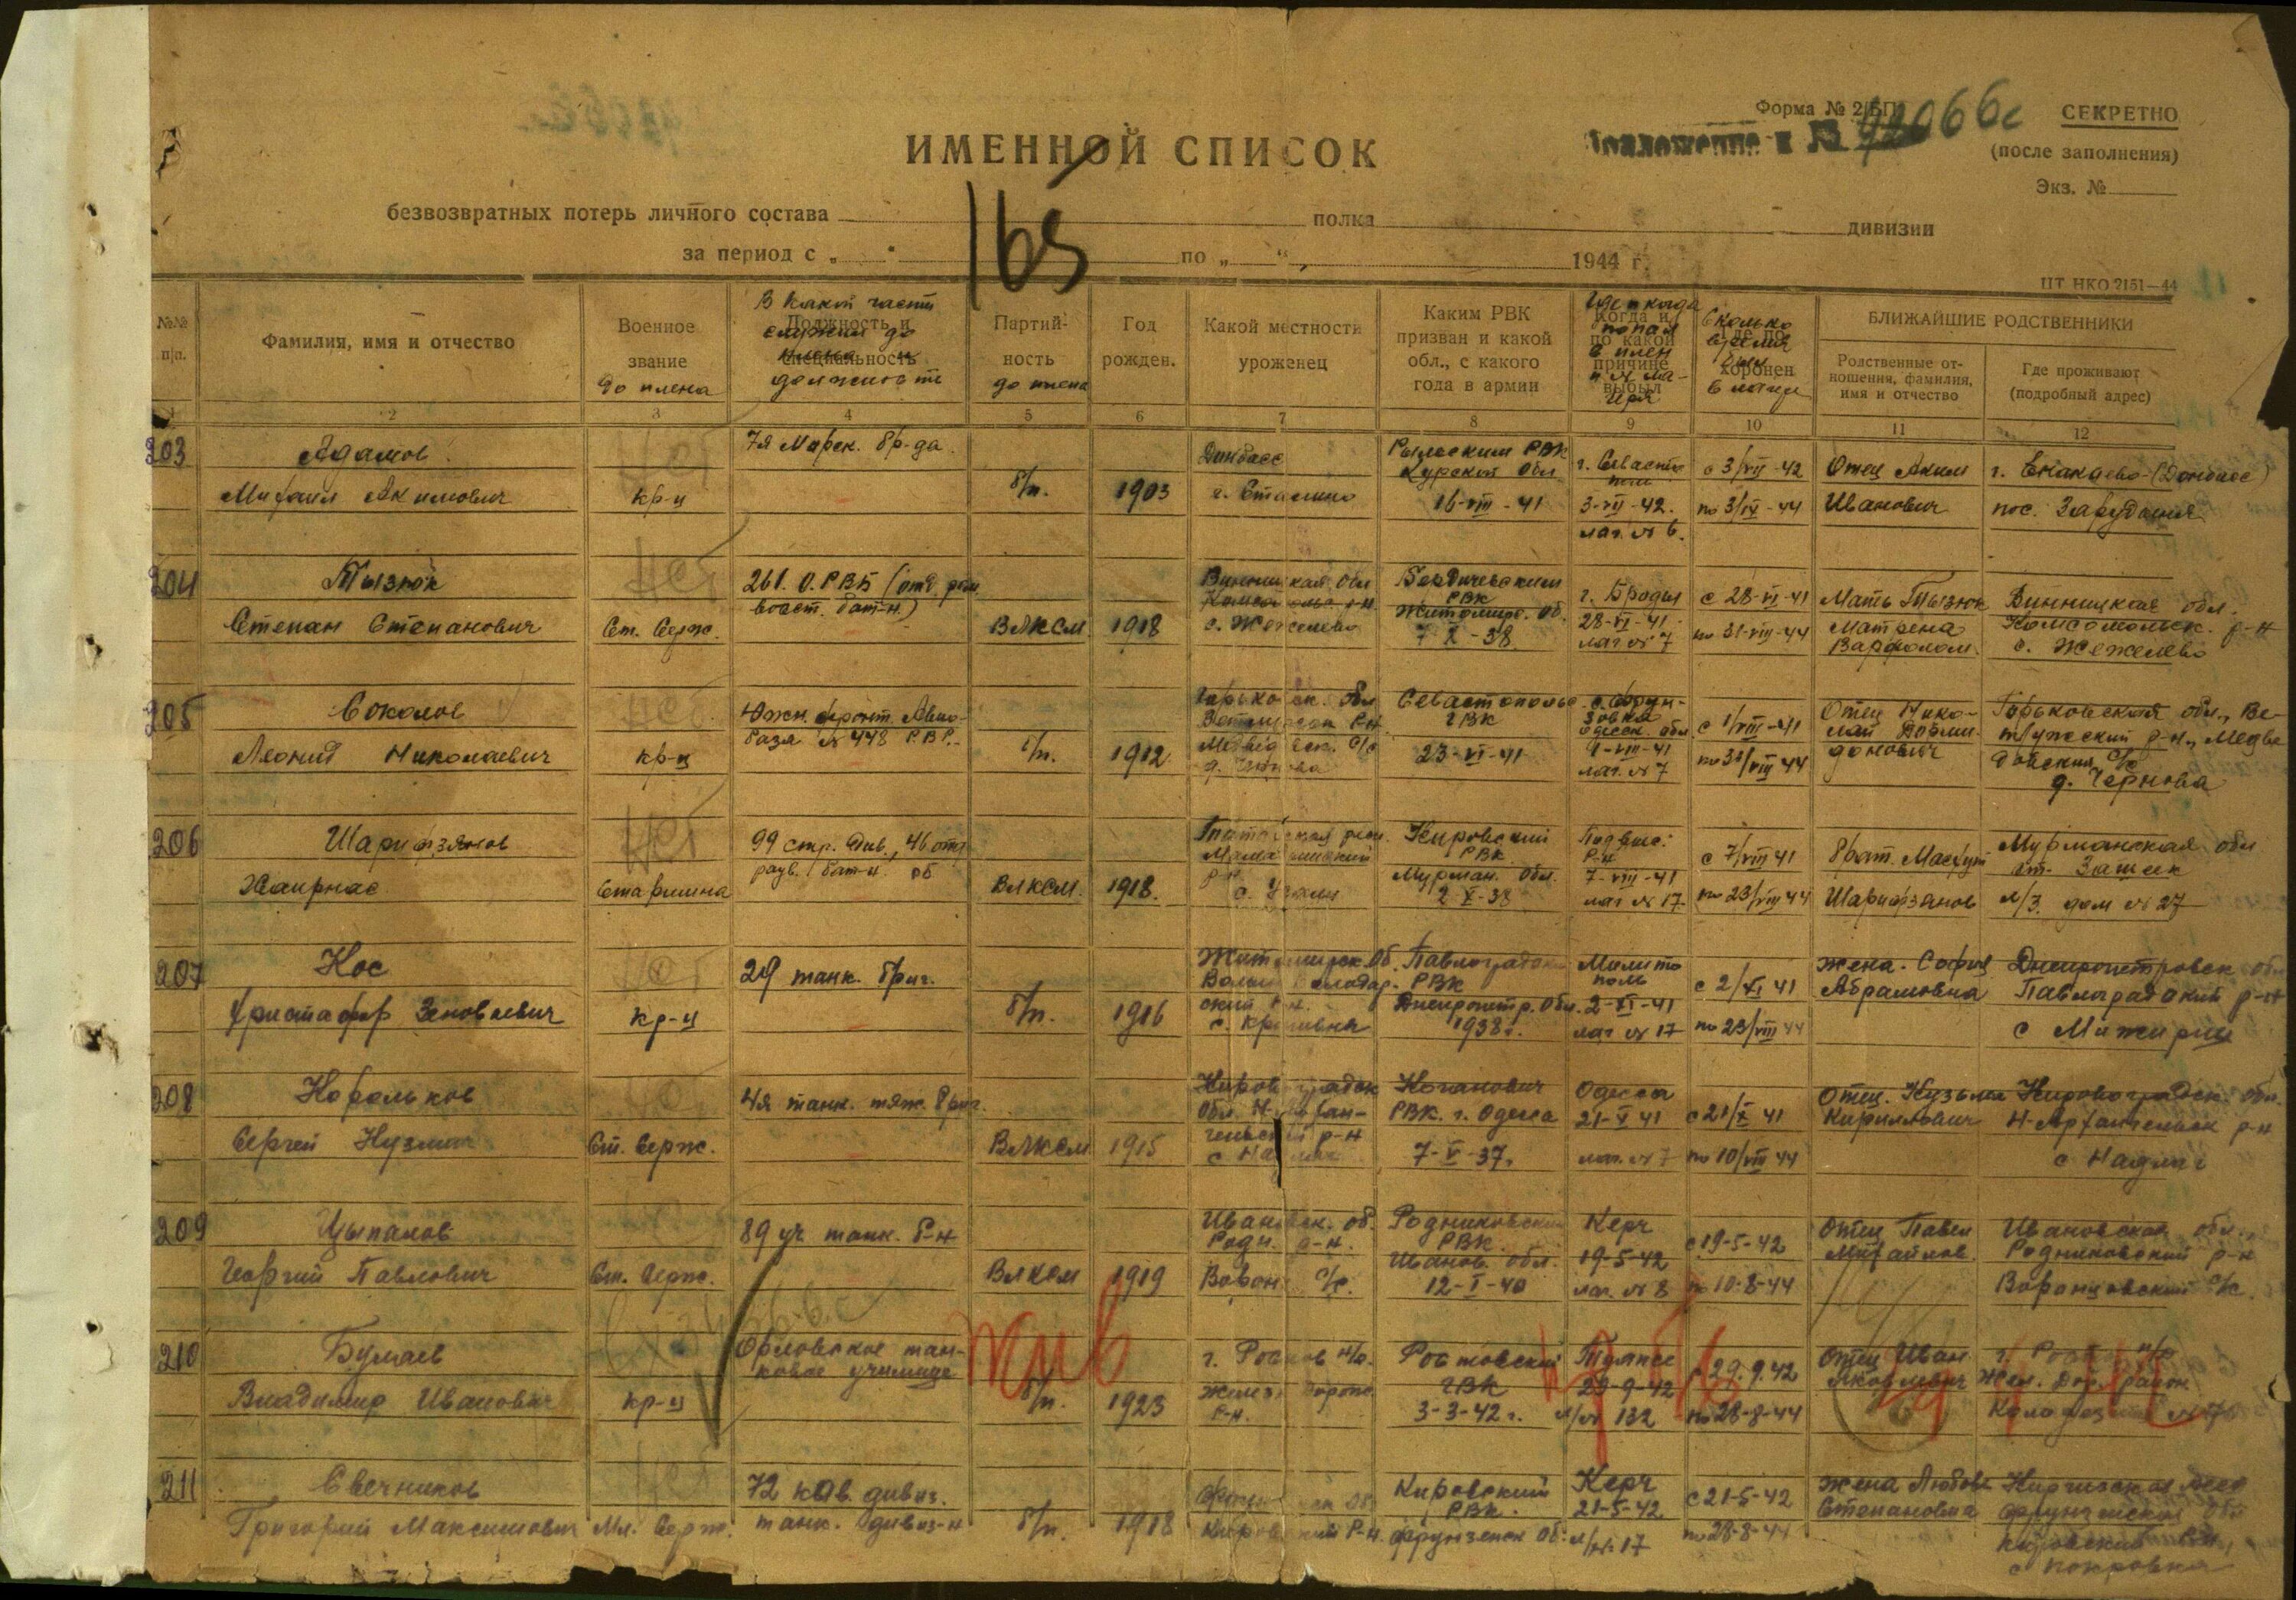 Форма № 2/БП
СЕКРЕТНО
Приложение к № 92066с
(после заполнения)
Экз. №
ИМЕННОЙ СПИСОК
безвозвратных потерь личного состава полка дивизии
за период с „ “ по „ “ 1944 г.
165
ЦТ НКО 2151—44
№№ п/п.
Фамилия, имя и отчество
Военное звание до плена
Должность и специальность
В какой части служил до плена и должность
Партий-
ность
до плена
Год
рожден.
Какой местности
уроженец
Каким РВК
призван и какой
обл., с какого
года в армии
Когда и
по какой
причине
выбыл
Где и когда
попал
в плен
и № ла-
геря
Где по-
хоронен
Сколько
время
был
в плену
БЛИЖАЙШИЕ РОДСТВЕННИКИ
Родственные от-
ношения, фамилия,
имя и отчество
Где проживают
(подробный адрес)
1 2 3 4 5 6 7 8 9 10 11 12
203
Адамов
Михаил Акимович
кр-ц
7я Морск. бр-да
б/п.
1903
Донбасс
г. Сталино
Рыльским РВК
Курской Обл
16-VIII-41
г. Севасто
поль
3-VII-42.
лаг. № 6.
с 3/VII-42
по 3/IX-44
Отец Аким
Иванович
г. Енакиево-(Донбасс)
пос.
204
Тызюк
Степан Степанович
Ст. Серж.
261. О.РВБ (отд. рем.
восст. бат-н.)
ВЛКСМ
1918
Винницкая обл
Комсомольс. р-н
с. Жежелево
Бердичевским
РВК
Житомирс. об.
7 X-38
г. Броды
28-VI-41
лаг № 7
с 28-VI-41
по 31-VIII-44
Мать Тызюк
Матрена
Варфолом.
Винницкая обл.
Комсомольск. р-н
с. Жежелево
205
Соколов
Леонид Николаевич
кр-ц
Южн. фронт. Авиа-
база № 448 Р.В.Р.
б/п.
1912
Горьковск. обл
Ветлужск Р-н
Медвед ск. с/с
д. Чернова
Севастополь
ГВК
23-VI-41
одесск. обл.
1-VIII-41
лаг. № 7
с 1/VIII-41
по 31/VIII 44
Отец Нико-
лай
Горьковская обл., Ве-
тлужский р-н, Медве-
д. Чернова
206
Шарифзянов
Хаирнас
Старшина
99 стр. див., 46 отд
разв. бат-н. рб
ВЛКСМ.
1918.
Мамадышский
р-н
Кировский
РВК
Мурман. Обл.
2 X-38
Подвыс.
Р-н
7-VIII-41
лаг № 17
с 7/VIII 41
по 23/VIII 44
брат. Масхут
Шарифзянов
Мурманская обл
ст. Зашеек
л/з. дом № 27
207
Кос
Христафор Зеновьевич
кр-ц
29 танк. бриг.
б/п.
1916
Житомирск. Об.
с. Кропивня
Павлоградский
РВК
Днепропетр. Обл.
1938 г.
Мелито
поль
2-XI-41
лаг № 17
с 2/XI 41
по 23/VIII 44
жена. София
Абрамовна
Днепропетровск обл
Павлоградский р-н
с Межирич
208
Корольков
Сергей Кузмич
Ст. Серж.
4я танк. тяж. бриг.
ВЛКСМ
1915
Кировоградск
Обл. Н-Архан-
гельский р-н
Коганович
РВК. г. Одесса
7-V-37г.
Одесса
21-X 41
лаг. № 7
с 21/X 41
по 10/VIII 44
Отец. Кузьма
Кириллович
Кировоградск. Обл.
Н-Архангельск р-н
209
Цыпалов
Георгий Павлович
Ст. Серж.
89 уч. танк. б-н
ВЛКСМ
1919
Ивановск. об.
Родн. р-н.
Ворон. с/с.
Родниковский
РВК
Иванов. обл.
12-I-40
Керч
19-5-42
лаг. № 8
с 19-5-42
по 10-8-44
Отец Павел
Михайлов.
Ивановская обл.,
Родниковский р-н
Воронцовский с/с.
210
Бумаев
Владимир Иванович
кр-ц
Орловское тан-
ковое училище
жив
б/п.
1923
г. Ростов н/Д.
Железн дорожн.
р-н.
Ростовский
ГВК
3-3-42 г.
Туапсе
29-9-42
л/№ 132
с 29.9.42
по 28-8-44
Отец Иван
Яковлевич
г. Ростов н/Д
Жел. Дор. район
211
Свечников
Григорий Максимович
Мл. Серж.
72 кав. дивиз.
танк. дивиз-н
б/п.
1918
Кировский Р-н.
Кировский
РВК.
Фрунзенск Об.
Керч
21-5-42
л/№ 17
с 21-5-42
по 28-8-44
жена Любовь
Степановна
Киргизская ССР
Фрунзенская Обл
Кировский р-н,
с Покровка